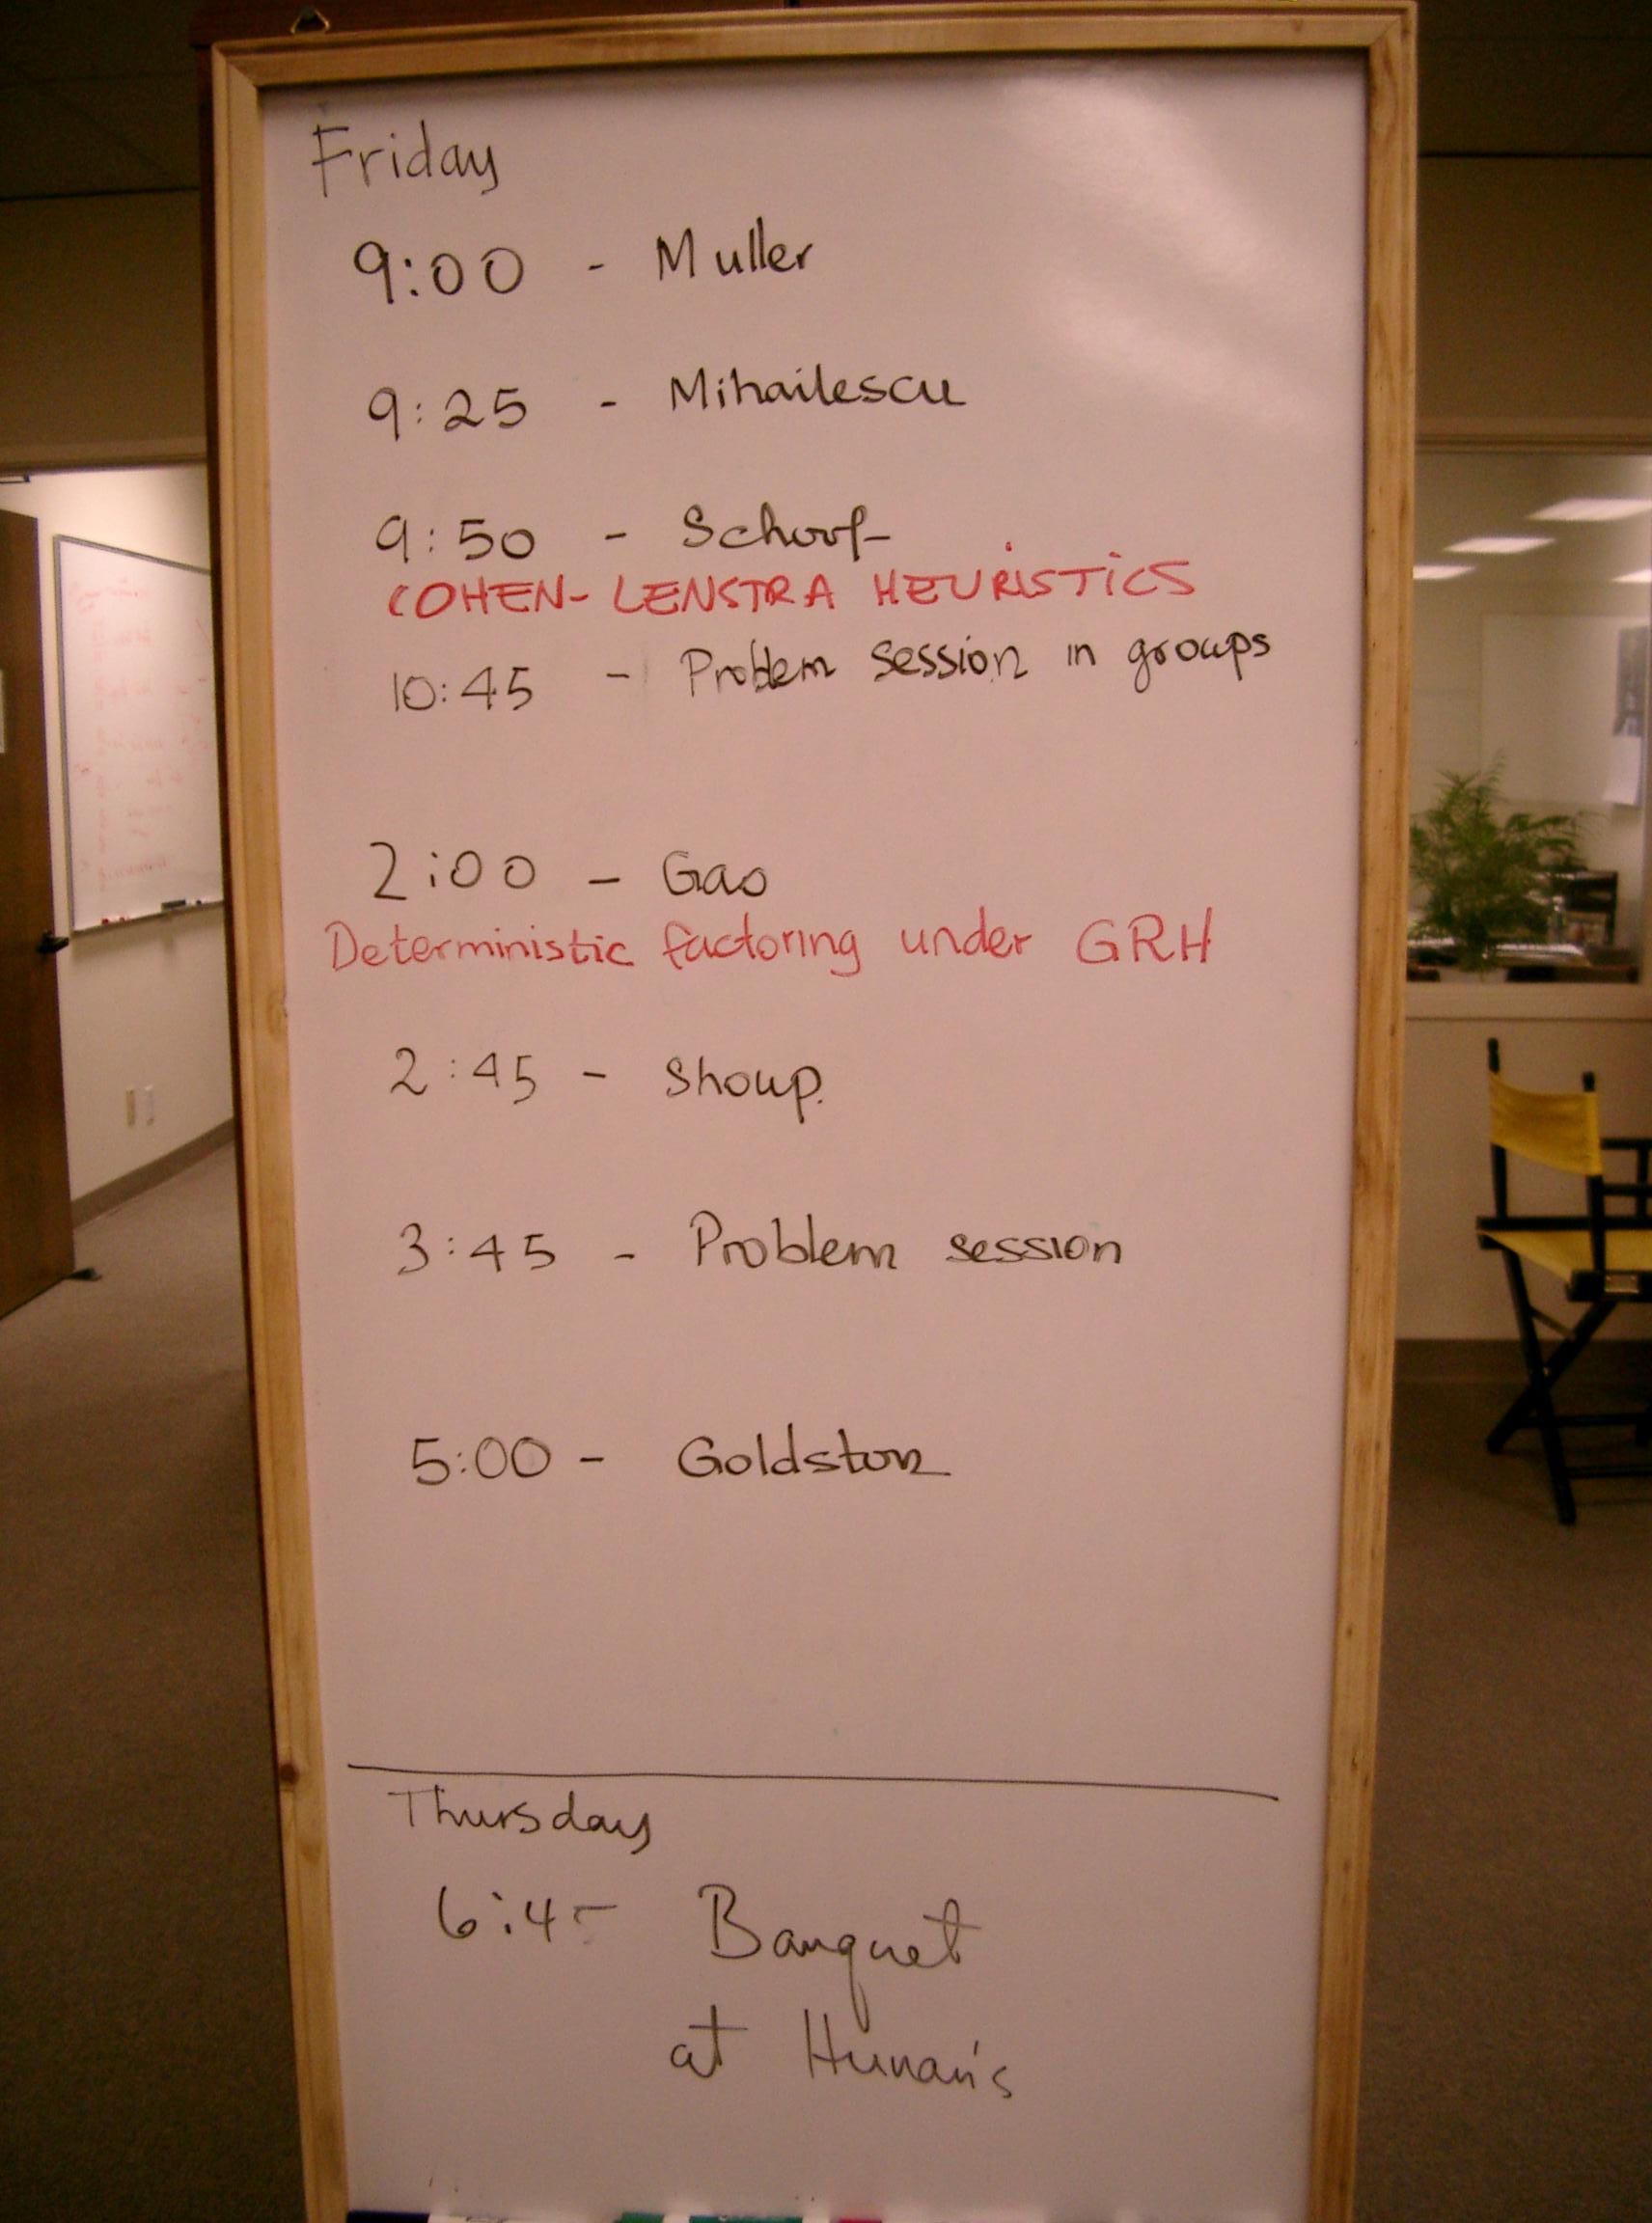 Friday
9:00 - Muller
9:25 - Mihailescu
9:50 - Schoof
COHEN-LENSTRA HEURISTICS
10:45 - Problem session in groups
2:00 - Gao
Deterministic factoring under GRH
2:45 - Shoup
3:45 - Problem session
5:00 - Goldston
Thursday
6:45 Banquet
at Hunan's